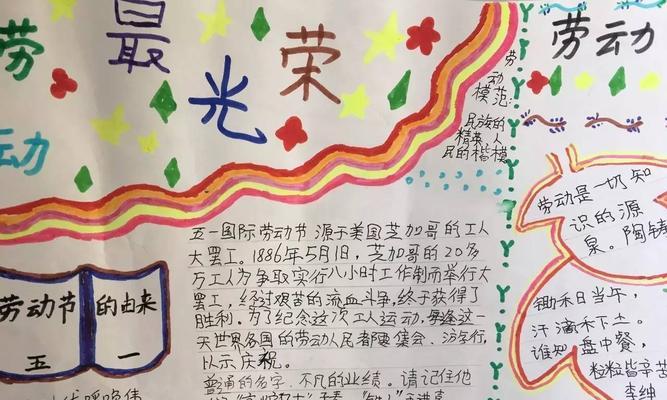 劳动最光荣
劳动
模范:
民族的
精英 人
民的楷模
劳动
劳动是一切知
识的源
泉。陶铸
劳动节的由来
五一
五一国际劳动节源于美国芝加哥的工人
大罢工。1886年5月1日,芝加哥的20多
万工人为争取实行八小时工作制而举行大
罢工,经过艰苦的流血斗争,终于获得了
胜利。为了纪念这次工人运动,每逢这一
天世界各国的劳动人民都要集会、游行,
以示庆祝。
普通的名字,不凡的业绩。请记住他
锄禾日当午,
汗滴禾下土。
谁知盘中餐,
粒粒皆辛苦
李绅